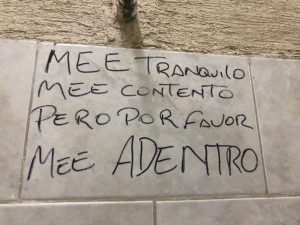 MEE TRANQUILO
MEE CONTENTO
PERO POR FAVOR
MEE ADENTRO